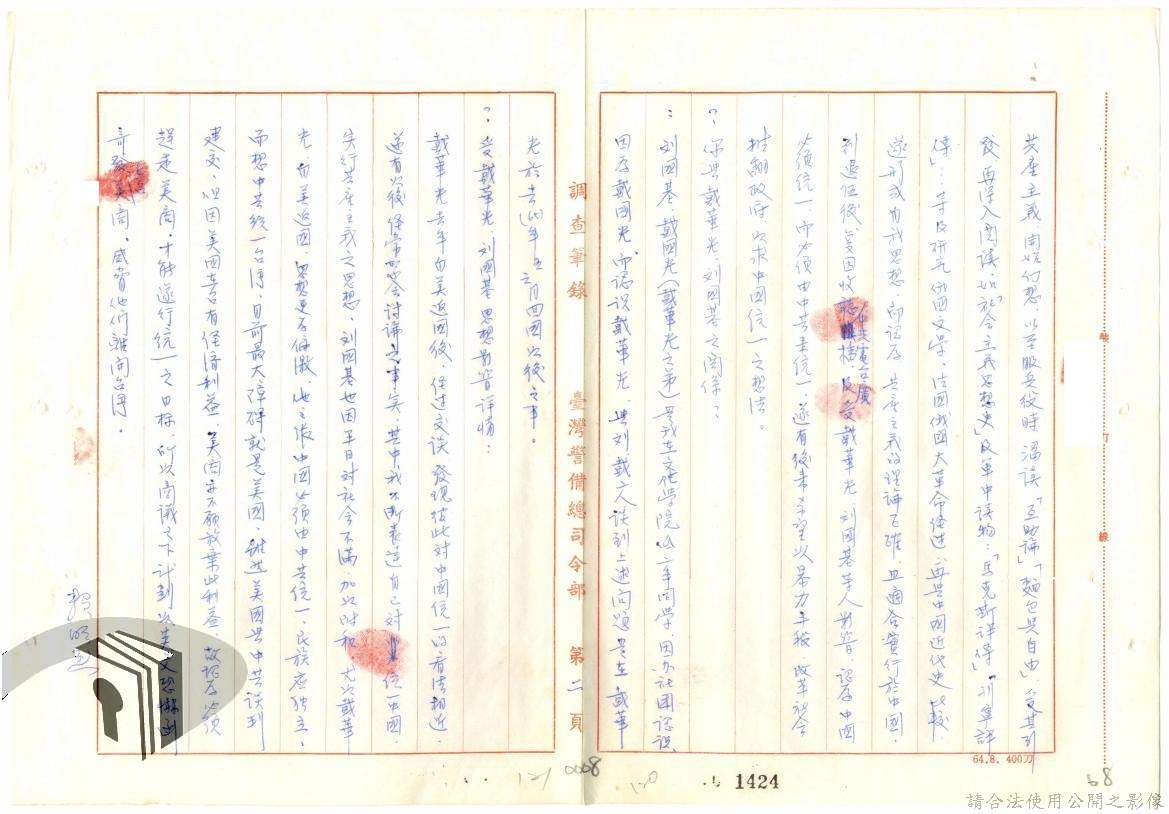 共產主義開始幻想，以至服兵役時，深讀「互助論」「麵包與自由」，受其引
發，再深入閱讀，如「社會主義思想史」及軍中讀物：「馬克斯評傳」「列寧評
傳」：等及研究俄國文學，法國俄國大革命經過，再與中國近代史比較
遂形成自我思想，即認為共產主義的理論正確，且適合實行於中國，
到退伍後，復因收聽中共電台廣播，及受戴華光，劉國基等人影響，認為中國
必須統一，而必須由中共來統一，遂有後來希望以暴力手段，改革社會
推翻政府，以求中國統一之想法。
？你與戴華光，劉國基之關係？
：劉國基，戴國光（戴華光之弟）是我在文化學院 同學，因办社團認識，
因為戴國光，而認識戴華光，與劉戴二人談到上述問題是在戴華
光於去(66)年五六月回國以後之事。
？受戴華光，劉國基思想影響詳情：
戴華光去年自美返國後，經過交談，發現彼此對中國統一的看法相近，
遂有以後經常聚會討論之事實，其中我不斷表達自己對 統一中國，
失行共產主義之思想，劉國基也因平日對社會不滿，加以附和，尤以戴華
光，自美返國，思想更為偏激，他主張中國必須由中共統一，民族應獨立，
而想中共統一台灣，目前最大障碍就是美國，雖然美國與中共談到
建交，但因美國在台有經濟利益，美商亦不願放棄此利益，故認為必須
趕走美商，才能遂行統一之目標，所以商議之下計劃以英文恐嚇函
寄發美商，威脅他們離開台灣。
調查筆錄
臺灣警備總司令部
第二頁
裝
訂
線
64.8. 400刀
121
0008
120
1424
68
請合法使用公開之影像